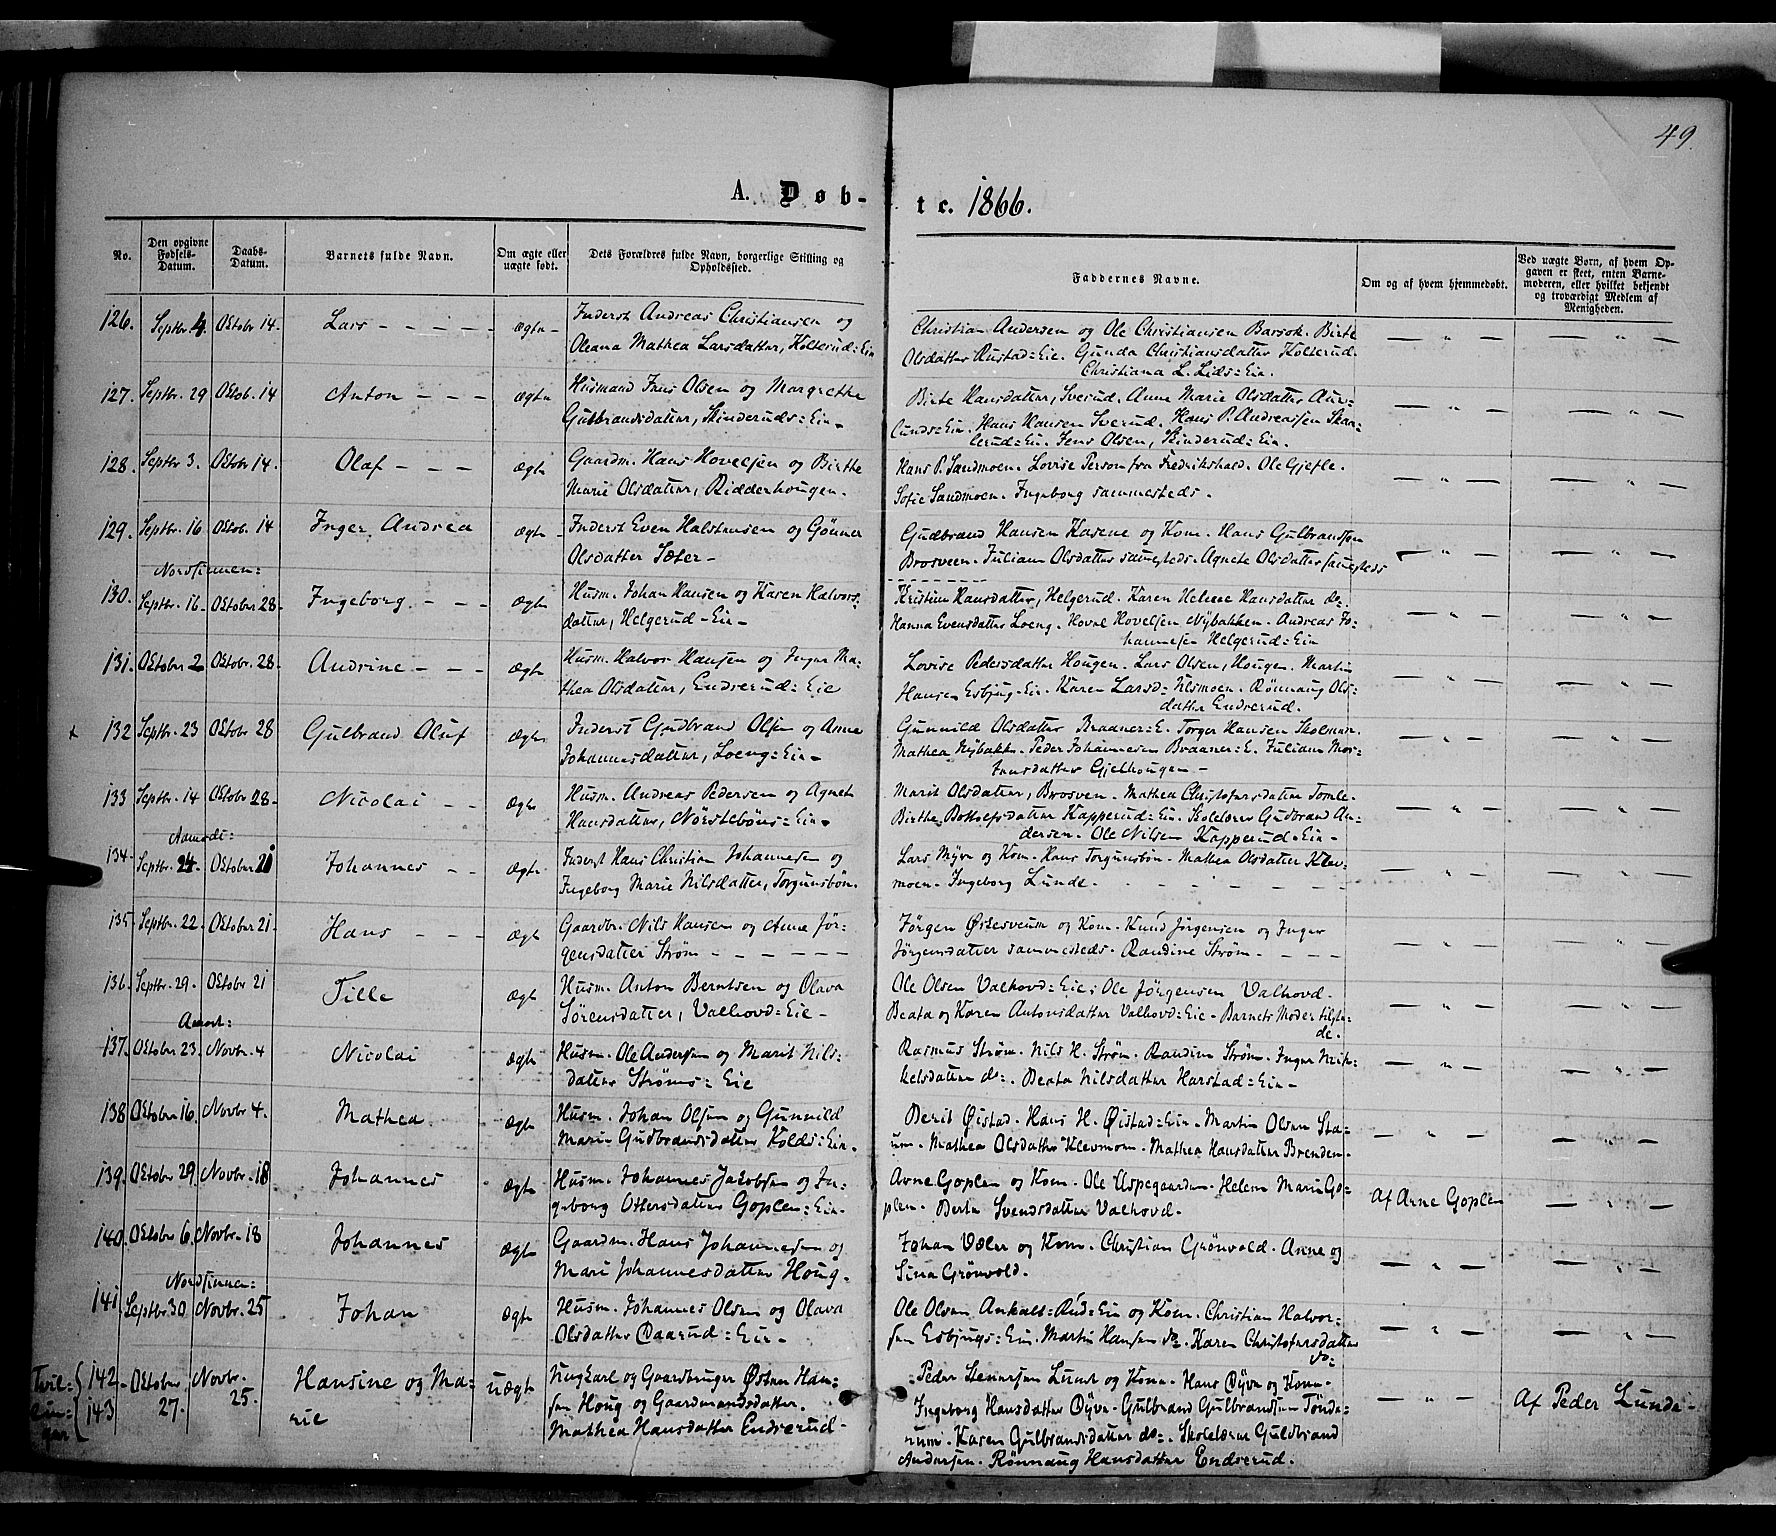 49.
A. Døb-
te. 1866.
No.
Den opgivne Fødsels-Datum.
Daabs-Datum.
Barnets fulde Navn.
Om ægte eller uægte født.
Dets Forældres fulde Navn, borgerlige Stilling og Opholdssted.
Faddernes Navne.
Om og af hvem hjemmedøbt.
Ved uægte Børn, af hvem Opgaven er skeet, enten Barnemoderen, eller hvilket bekjendt og troværdigt Medlem af Menigheden.
126. Septbr. 4. Oktobr 14. Lars - - - - - ægte - Inderst Andreas Christiansen og
Oleana Mathea Larsdatter, Kolterud=Eie
Christian Andersen og Ole Christiansen Barsok. Birte
Olsdatter Rustad=Eie. Gunda Christiansdatter Kolterud.
Christiana L. Lids=Eie.
127. Septbr. 29 Oktob. 14 Anton - - - Ægte Husmand Jens Olsen og Margrethe
Gulbrandsdatter, Skinderuds=Eie-
Birte Hansdatter, Sverud. Anne Marie Olsdatter Aur-
lunds=Eie. Hans Hansen Sverud. Hans P. Andreassen Skar-
lerud=Ei. Jens Olsen, Skinderud=Eie.
128. Septbr 3. Oktobr 14. Olaf - - - ægte Gaardm. Hans Hovelsen og Birthe
Marie Olsdatter, Ridderhougen.
Hans P. Sandmoen. Lovise Person fra Fredrikshald. Ole Gjefle.
Sofie Sandmoen. Ingeborg sammesteds.
129. Septbr 16 Oktob. 14 Inger Andrea ægte - Inderst Even Halstensen og Gønner
Olsdatter Sæter -
Gudbrand Hansen Kasene og Kone. Hans Gulbrandsen
Brosveen. Juliane Olsdatter samesteds. Agnete Olsdatter samesteds
Nordsinnen:
130. Septbr. 16. Oktober 28. Ingeborg. - - - Ægte Husm. Johan Hansen og Karen Halvors-
datter, Helgerud-Eie-
Kristine Hansdatter, Helgerud. Karen Helene Hansdatter do.
Hanna Evensdatter Loeng. Hovel Hovelsen Nybakken. Andreas Jo-
hannesen Helgerud=Eie
131. Oktober 2 Oktobr. 28. Andrine - - - Ægte Husm. Halvor Hansen og Inger Ma-
thea Olsdatter, Endrerud=Eie
Lovise Pedersdatter Hougen. Lars Olsen, Hougen. Martin
Hansen Esbjug-Eie. Karen Larsd= Ulsmoen. Rønnaug Ols-
datter Endrerud.
x 132 Septbr. 23 Oktobr 28 Gulbrand Oluf Ægte Inderst Gudbrand Olsen og Anne
Johannesdatter, Loeng=Eie-
Gunnild Olsdatter Braaner=E. Torger Hansen Skolmen.
Mathea Nybakk. Peder Johannesen Braaner=E. Juliane Mor-
tensdatter Gjelhougen -
133 Septbr. 14 Oktobr 28. Nicolai - - Ægte Husm. Andreas Pedersen og Agnete
Hansdatter, Nørstebøns=Eie.
Marit Olsdatter, Brosven. Mathea Christofersdatter Tomle.
Birthe Bottolfsdatter Kapperud=Eie. Skolelærer Gudbrand An-
dersen. Ole Nilsen Kapperud=Eie-
Aamodt:
134. Septbr. 24. Oktober 21 Johannes - - Ægte Inderst Hans Christian Johannesen og
Ingeborg Marie Nilsdatter, Torgunsbøn.
Lars Myre og Kone. Hans Torgunsbøn. Mathea Olsdatter Klev-
moen. Ingeborg Lunde.
135. Septbr. 22. Oktober 21. Hans - - - Ægte Gaardbr. Nils Hansen og Anne Jør-
gensdatter Strøm - - - - - -
Jørgen Østesveum og Kone. Knud Jørgensen og Inger
Jørgensdatter sammesteds. Randine Strøm.
136. Septbr. 29. Oktobr 21 Tille Ægte Husm. Anton Berntsen og Olava
Sørensdatter, Valhovd=Eie-
Ole Olsen Valhovd=Eie; Ole Jørgensen Valhovd.
Beata og Karen Antonsdatter Valhovd=Eie. Barnets Moder tilstæ-
de.
Aamot:
137. Oktober 23. Novbr. 4 Nicolai Ægte Husm. Ole Andersen og Marit Nils-
datter Strøms=Eie
Rasmus Strøm. Nils H. Strøm. Randine Strøm. Inger Mik-
kelsdatter do:. Beata Nilsdatter Harstad=Eie-
138 Oktober 16. Novbr 4. Mathea. Ægte Husm. Johan Olsen og Gunnild
Marie Gudbrandsdatter Kolds=Eie.
Berit Øistad. Hans H. Øistad=Eie. Martin Olsen Sta-
um. Mathea Olsdatter Klevmoen. Mathea Hansdatter Brenden.
139. Oktober 29 Novbr. 18 Johannes Ægte Husm. Johannes Jakobsen og In-
geborg Ottersdatter Goplen=Eie-
Arne Goplen og Kone. Ole Uspegaarden. Helene Marie Go-
plen. Berte Svendsdatter Valhovd.
Af Arne Goplen
140. Oktober 6. Novbr. 18 Johannes Ægte Gaardm. Hans Johannesen og
Mari Johannesdatter Houg.
Johan Væler og Kone. Christian Grønvold. Anne og
Sina Grønvold.
Nordsinnen:
141. Septbr 30 Novbr. 25 Johan Ægte Husm. Johannes Olsen og Olava
Olsdatter Daarud=Eie-
Ole Olsen Ankalt=Rud=Eie og Kone. Christian Halvor-
sen Esbjugs=Eie. Martin Hansen do. Karen Christofersdatter
do=
Tvil-
lin-
ger
142-
143
Oktober 27. Novbr. 25. Hansine og Ma-
rie
uægte Ungkarl og Gaardbruger Østen Han-
sen Houg og Gaardmandsdatter.
Mathea Hansdatter Endrerud-
Peder Stenersen Lunde og Kone. Hans Dyve og Kone.
Ingeborg Hansdatter Dyve. Gulbrand Gulbrandsen Tønde-
rum. Karen Gulbrandsdatter do=. Skolelærer Guldbrand
Andersen. Rønnaug Hansdatter Endrerud.
Af Peder Lunde-